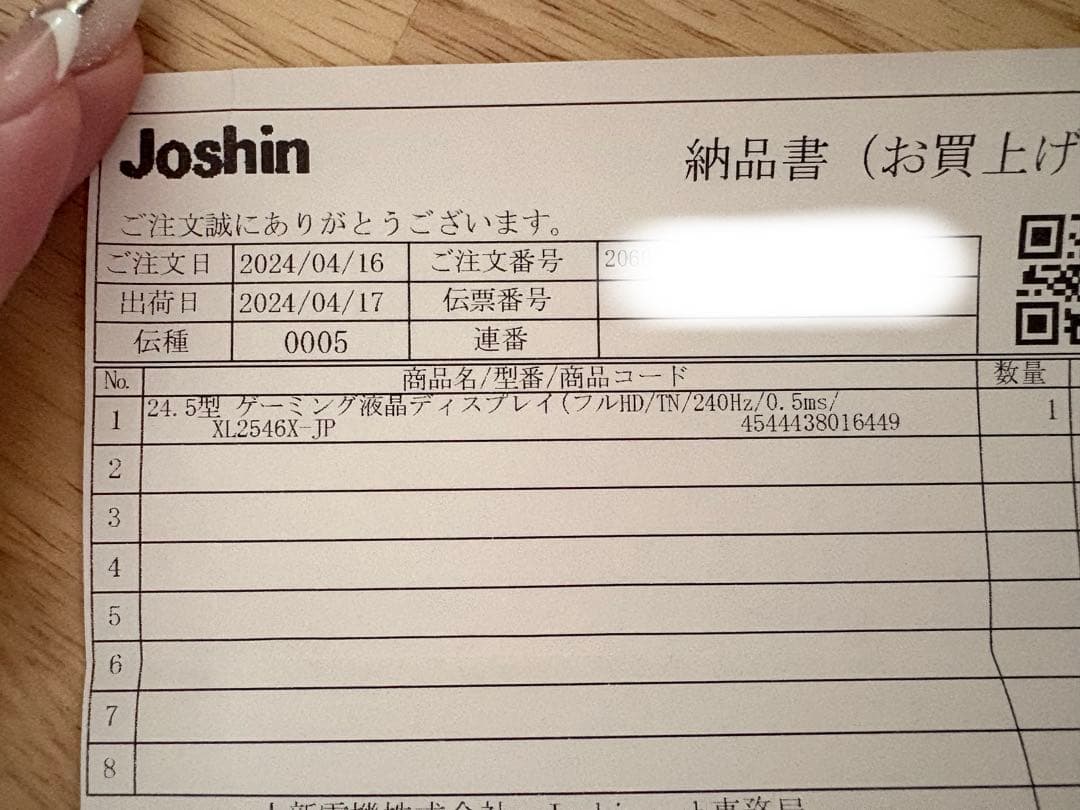 Joshin
納品書（お買上げ
ご注文誠にありがとうございます。
ご注文日 2024/04/16 ご注文番号 206
出荷日 2024/04/17 伝票番号
伝種 0005 連番
No. 商品名/型番/商品コード 数量
1 24.5型 ゲーミング液晶ディスプレイ(フルHD/TN/240Hz/0.5ms/ 1
XL2546X-JP 4544438016449
2
3
4
5
6
7
8